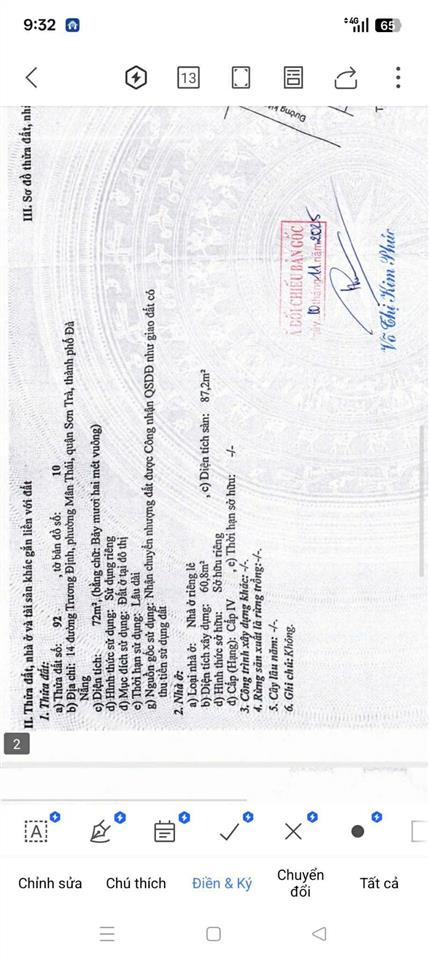 9:32
4G
65
13
III. Sơ đồ thửa đất, nhà
Đường
II. Thửa đất, nhà ở và tài sản khác gắn liền với đất
1. Thửa đất:
a) Thửa đất số: 92 , tờ bản đồ số: 10
b) Địa chỉ: 14 đường Trương Định, phường Mân Thái, quận Sơn Trà, thành phố Đà
Nẵng
c) Diện tích: 72m² (bằng chữ: Bảy mươi hai mét vuông)
d) Hình thức sử dụng: Sử dụng riêng
đ) Mục đích sử dụng: Đất ở tại đô thị
e) Thời hạn sử dụng: Lâu dài
g) Nguồn gốc sử dụng: Nhận chuyển nhượng đất được Công nhận QSDĐ như giao đất có
thu tiền sử dụng đất
2. Nhà ở:
a) Loại nhà ở: Nhà ở riêng lẻ
b) Diện tích xây dựng: 60,8m² , c) Diện tích sàn: 87,2m²
d) Hình thức sở hữu: Sở hữu riêng
đ) Cấp (Hạng): Cấp IV , e) Thời hạn sở hữu: -/-
3. Công trình xây dựng khác: -/-.
4. Rừng sản xuất là rừng trồng:-/-.
5. Cây lâu năm: -/-.
6. Ghi chú:Không.
ĐỐI CHIẾU BẢN GỐC
10 tháng 11 năm 2025
Võ Thị Kim Phúc
2
A
Chỉnh sửa
Chú thích
Điền & Ký
Chuyển đổi
Tất cả